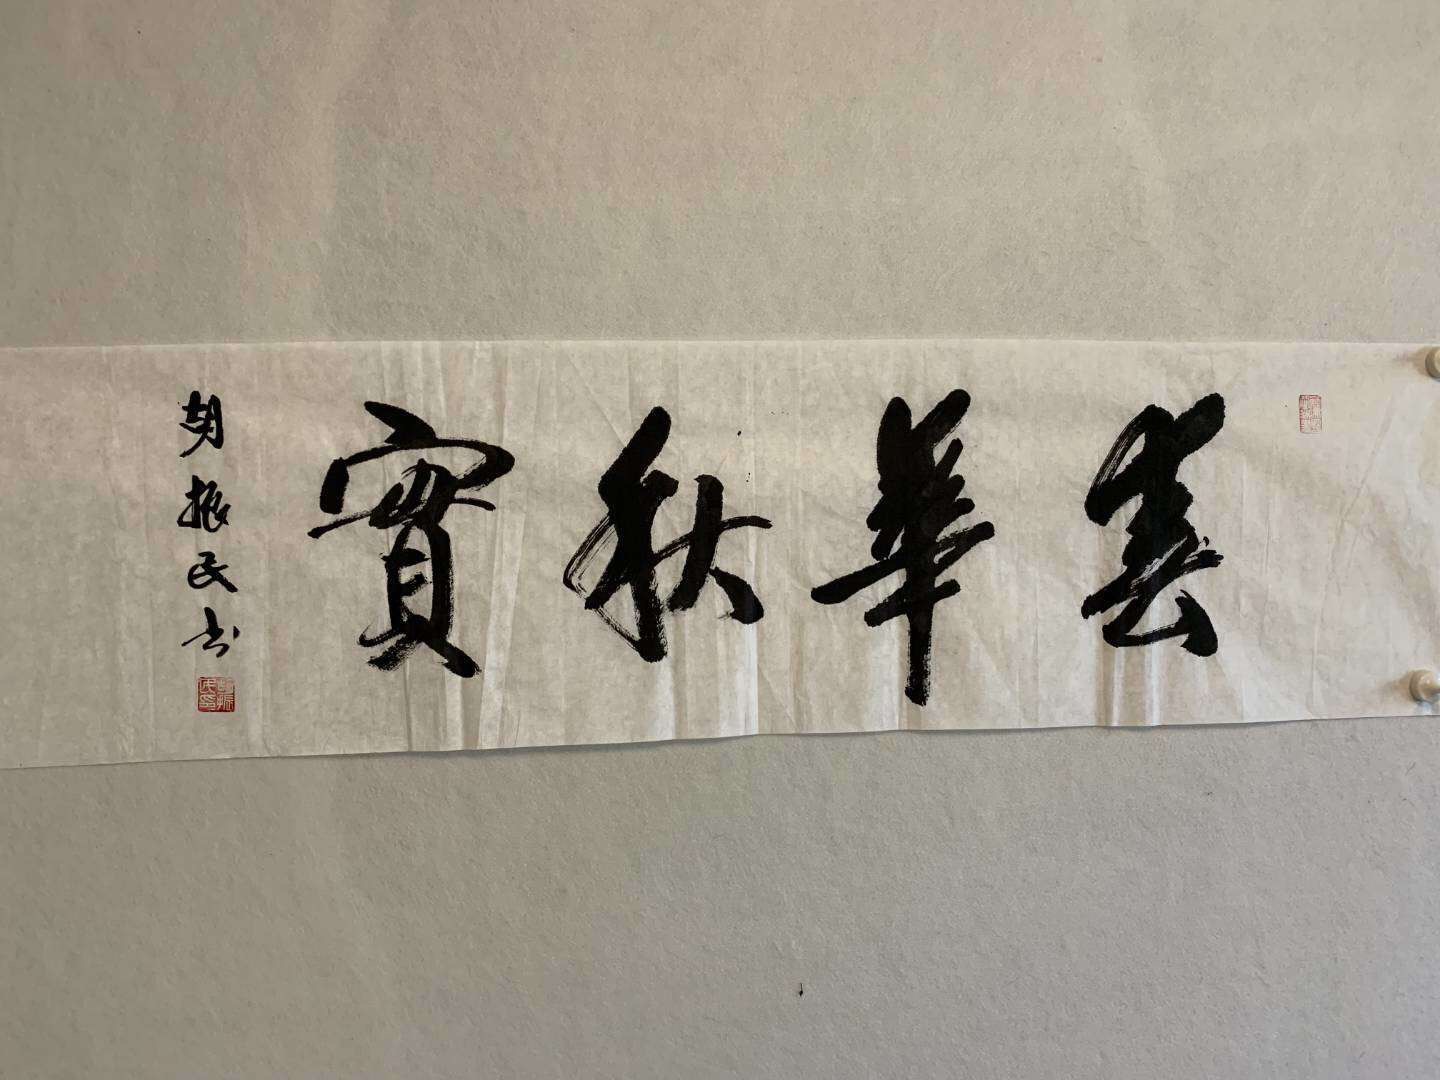 春華秋實
胡振民书